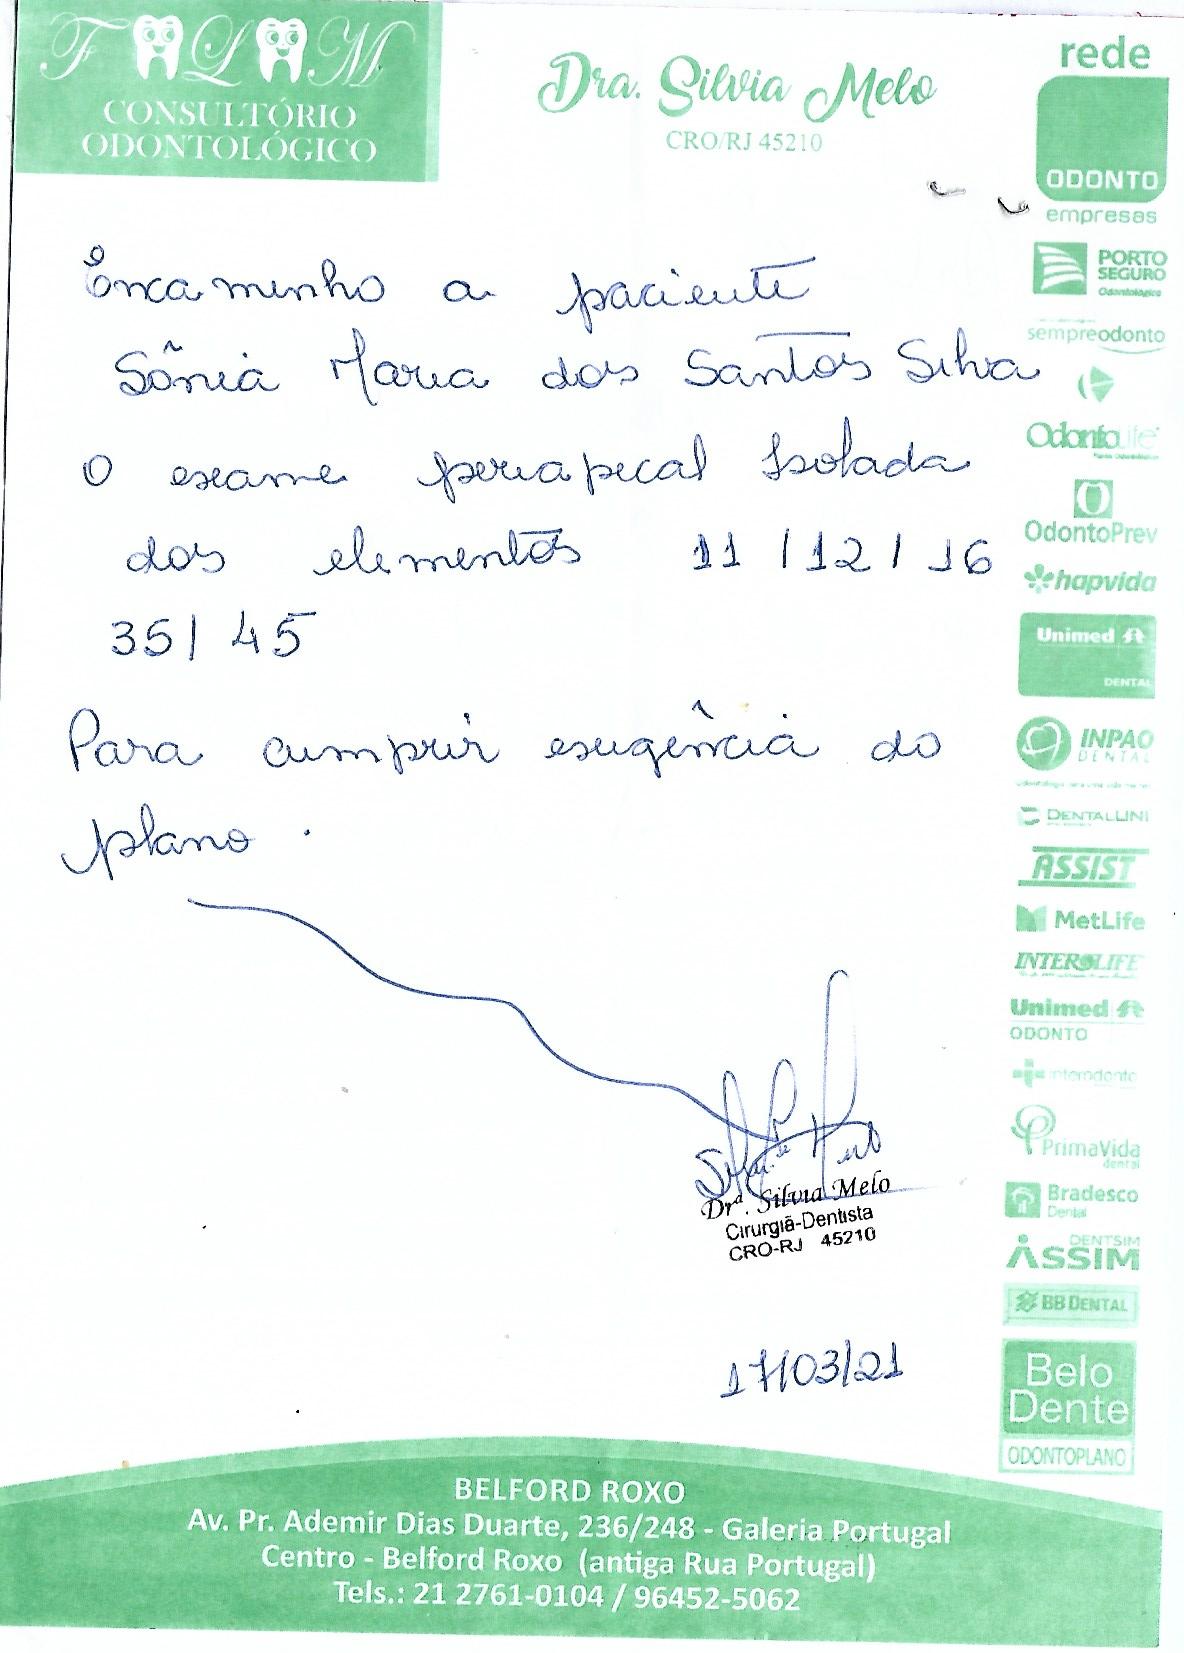 F L M
CONSULTÓRIO
ODONTOLÓGICO
Dra. Silvia Melo
CRO/RJ 45210
rede
ODONTO
empresas
PORTO
SEGURO
Odontológico
sempreodonto
Odontolife
OdontoPrev
hapvida
Unimed
DENTAL
INPAO
DENTAL
DENTALUNI
ASSIST
MetLife
INTEROLIFE
Unimed
ODONTO
interodonto
PrimaVida
dental
Bradesco
Dental
DENTSIM
ASSIM
BB DENTAL
Belo
Dente
ODONTOPLANO
Encaminho a paciente
Sônia Maria dos Santos Silva
O exame periapical Isolada
dos elementos 11 / 12 / 16
35 / 45
Para cumprir exigência do
plano.
Drª. Silvia Melo
Cirurgiã-Dentista
CRO-RJ 45210
17/03/21
BELFORD ROXO
Av. Pr. Ademir Dias Duarte, 236/248 - Galeria Portugal
Centro - Belford Roxo (antiga Rua Portugal)
Tels.: 21 2761-0104 / 96452-5062